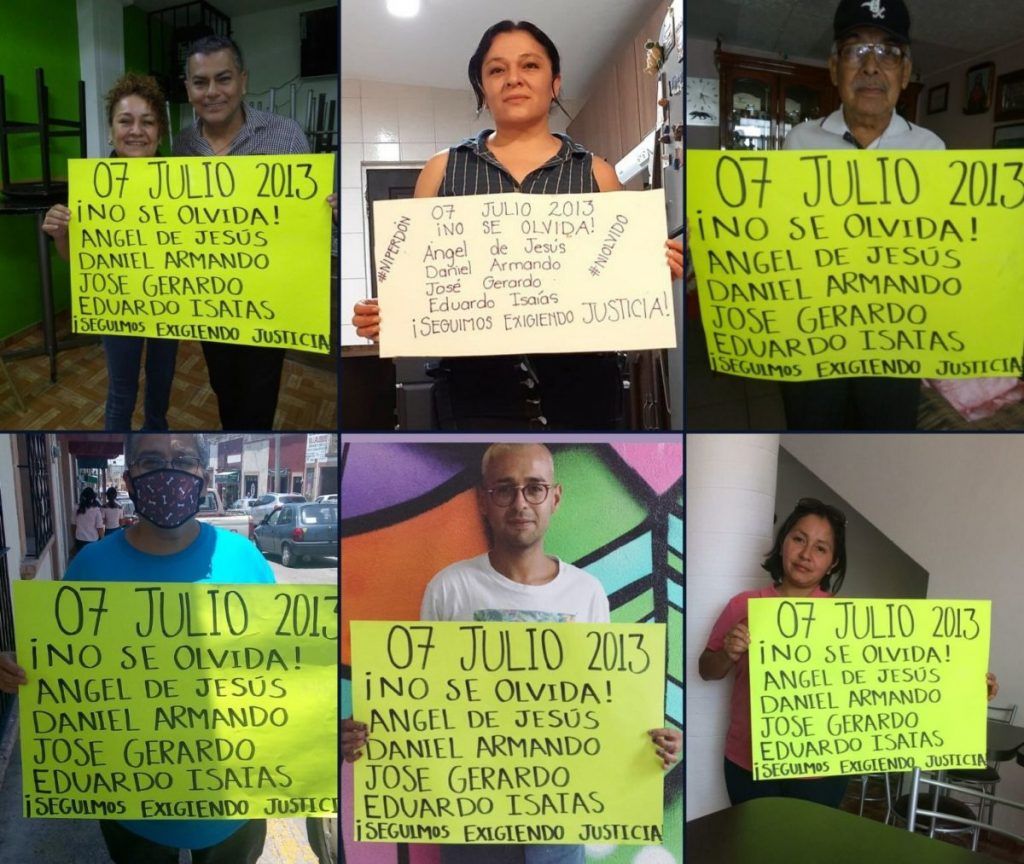 07 JULIO 2013
¡NO SE OLVIDA!
ANGEL DE JESÚS
DANIEL ARMANDO
JOSE GERARDO
EDUARDO ISAIAS
¡SEGUIMOS EXIGIENDO JUSTICIA
07 JULIO 2013
¡NO SE OLVIDA!
#NIPERDÓN
Angel de Jesús
Daniel Armando
José Gerardo
Eduardo Isaías
#NIOLVIDO
¡SEGUIMOS EXIGIENDO JUSTICIA!
07 JULIO 2013
¡NO SE OLVIDA!
ANGEL DE JESÚS
DANIEL ARMANDO
JOSE GERARDO
EDUARDO ISAIAS
¡SEGUIMOS EXIGIENDO JUSTICIA
07 JULIO 2013
¡NO SE OLVIDA!
ANGEL DE JESÚS
DANIEL ARMANDO
JOSE GERARDO
EDUARDO ISAIAS
¡SEGUIMOS EXIGIENDO JUSTICIA
07 JULIO 2013
¡NO SE OLVIDA!
ANGEL DE JESÚS
DANIEL ARMANDO
JOSE GERARDO
EDUARDO ISAIAS
¡SEGUIMOS EXIGIENDO JUSTICIA
07 JULIO 2013
¡NO SE OLVIDA!
ANGEL DE JESÚS
DANIEL ARMANDO
JOSE GERARDO
EDUARDO ISAIAS
¡SEGUIMOS EXIGIENDO JUSTICIA